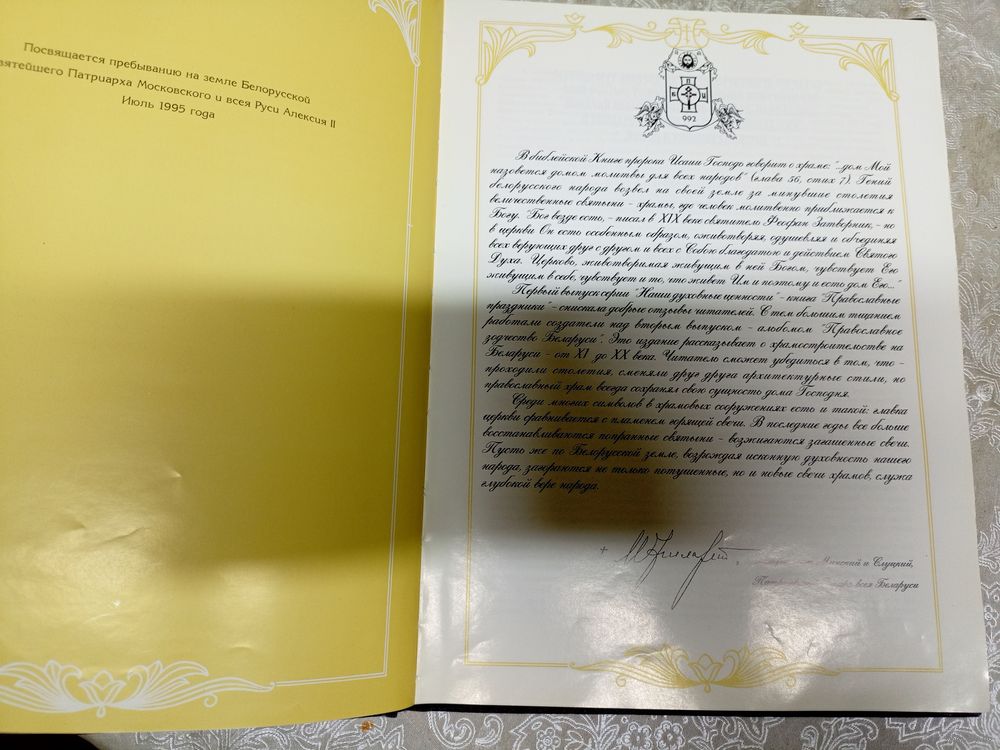 Посвящается пребыванию на земле Белорусской
вятейшего Патриарха Московского и всея Руси Алексия II
Июль 1995 года
Б П Ц
992
В библейской Книге пророка Исаии Господь говорит о храме: "...дом Мой
назовется домом молитвы для всех народов" (глава 56, стих 7). Гений
белорусского народа возвел на своей земле за минувшие столетия
величественные святыни - храмы, где человек молитвенно приближается к
Богу. "Бог везде есть, - писал в XIX веке святитель Феофан Затворник, - но
в церкви Он есть особенным образом, оживотворяя, одушевляя и объединяя
всех верующих друг с другом и всех с Собою благодатию и действием Святого
Духа. Церковь, животворимая живущим в ней Богом, чувствует Его
живущим в себе, чувствует и то, что живет Им и поэтому и есть дом Его..."
Первый выпуск серии "Наши духовные ценности" - книга "Православные
праздники" - снискала добрые отзывы читателей. С тем большим тщанием
работали создатели над вторым выпуском - альбомом "Православное
зодчество Беларуси". Это издание рассказывает о храмостроительстве на
Беларуси - от XI до XX века. Читатель сможет убедиться в том, что -
проходили столетия, сменяли друг друга архитектурные стили, но
православный храм всегда сохранял свою сущность дома Господня.
Среди многих символов в храмовых сооружениях есть и такой: главка
церкви сравнивается с пламенем горящей свечи. В последние годы все больше
восстанавливаются попранные святыни - возжигаются загашенные свечи.
Пусть же по Белорусской земле, возрождая исконную духовность нашего
народа, загораются не только потушенные, но и новые свечи храмов, служа
глубокой вере народа.
+ М. Филарет,
Минский и Слуцкий,
всея Беларуси